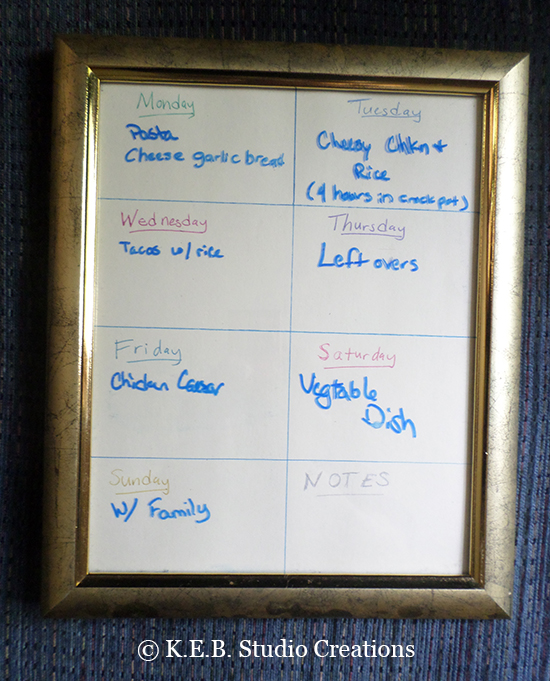 Monday
Pasta
Cheese garlic bread
Tuesday
Cheesy Chkn +
Rice
(4 hours in crock pot)
Wednesday
Tacos w/ rice
Thursday
Left overs
Friday
Chicken Caesar
Saturday
Vegtable
Dish
Sunday
W/ Family
NOTES
© K.E.B. Studio Creations